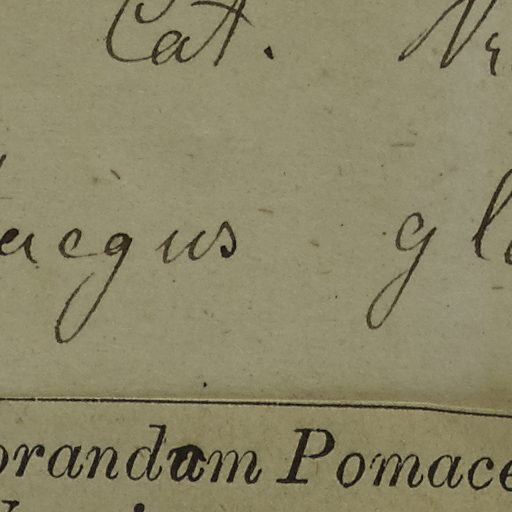 Cat.
aegus gl
orandum Pomace